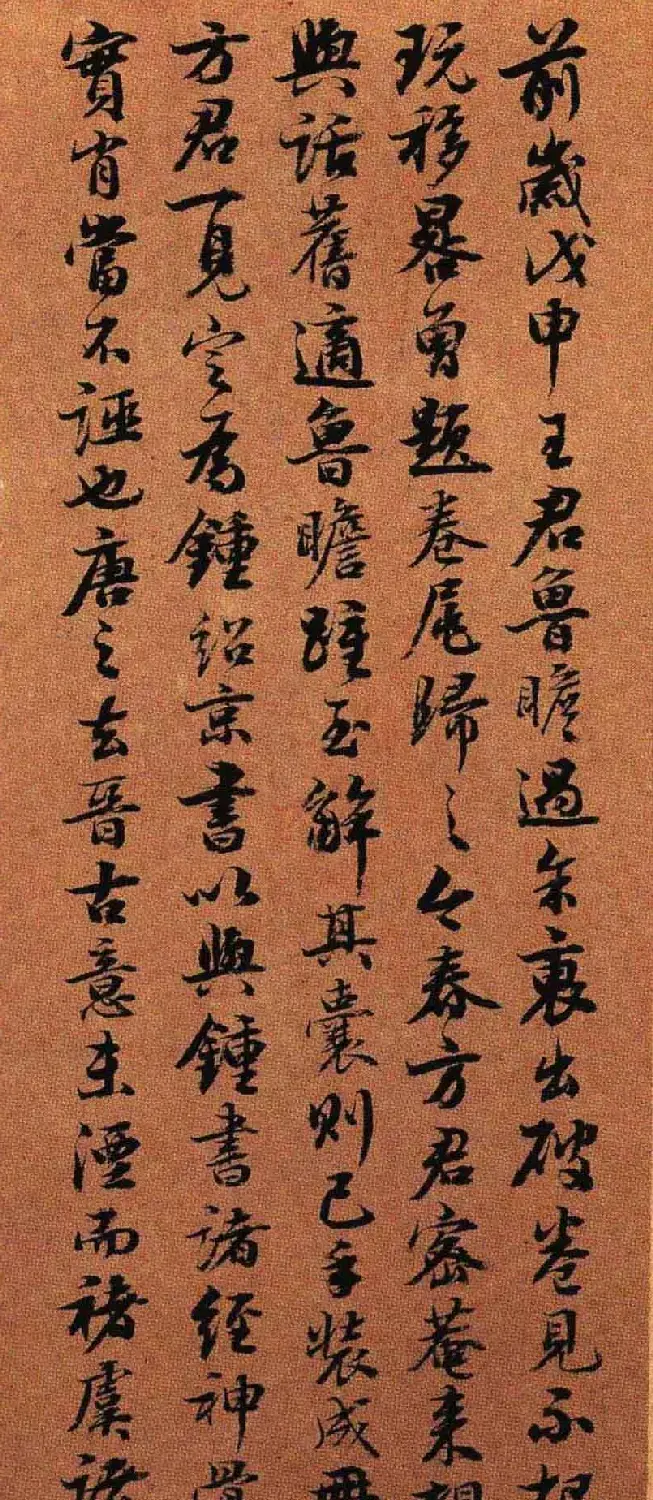 前歲戊申王君魯瞻過余裏出破卷見示
玩移晷曾題卷尾歸之今春方君密菴来
與話舊適魯瞻踵至解其囊則已手装成冊
方君一見定為鍾紹京書以與鍾書諸經神骨
實肖當不誣也唐之去晉古意未湮而褚虞諸